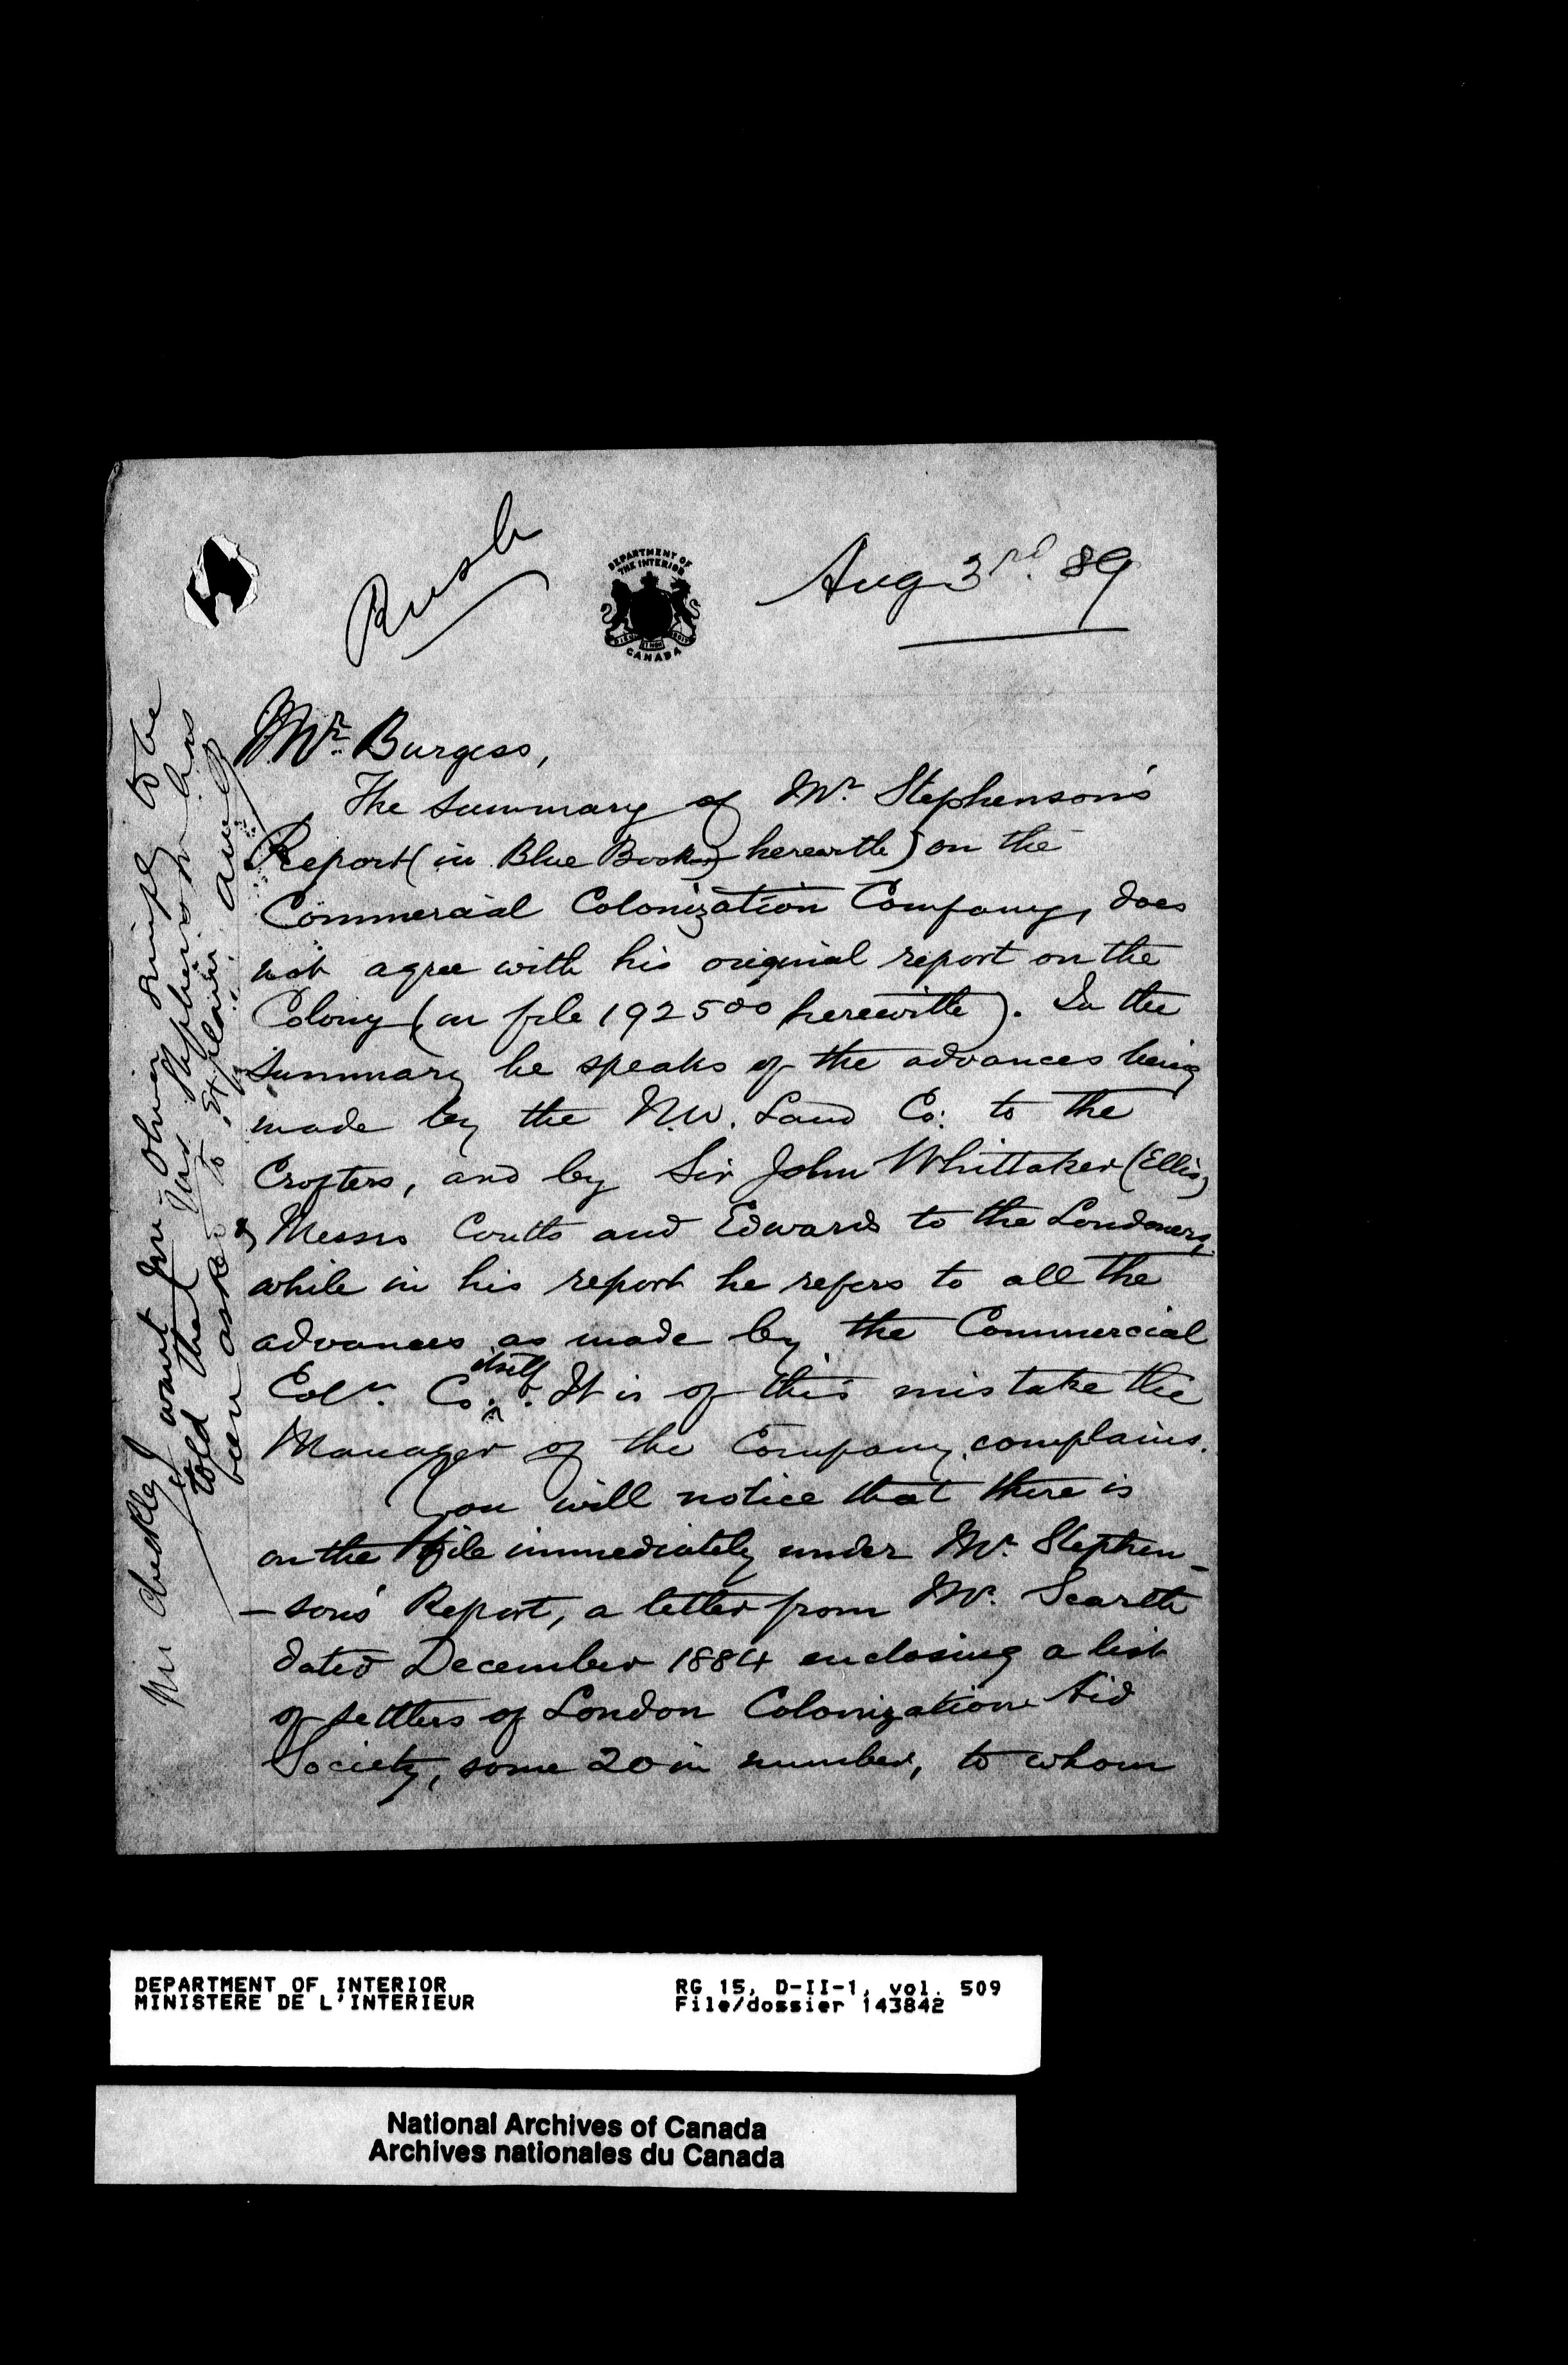 Rush
DEPARTMENT OF
THE INTERIOR
CANADA
Aug 3rd. 89
Mr. Burgess,
The summary of Mr. Stephenson's
Report (in Blue Book herewith) on the
Commercial Colonization Company, does
not agree with his original report on the
Colony (on file 192500 herewith). In the
summary he speaks of the advances being
made by the N.W. Land Co: to the
Crofters, and by Sir John Whittaker (Ellis)
& Messrs Coutts and Edwards to the Londoners,
while in his report he refers to all the
advances as made by the Commercial
Coln. Co. itself. It is of this mistake the
Manager of the Company complains.
You will notice that there is
on the file immediately under Mr. Stephen-
-son's Report, a letter from Mr. Scarth
dated December 1884 enclosing a list
of settlers of London Colonization Aid
Society, some 20 in number, to whom
Mr Chiskley I want Mr. Oliver simply to be
told that Mr Stephenson has
been asked to explain.
DEPARTMENT OF INTERIOR
MINISTERE DE L'INTERIEUR
RG 15, D-II-1, vol. 509
File/dossier 143842
National Archives of Canada
Archives nationales du Canada